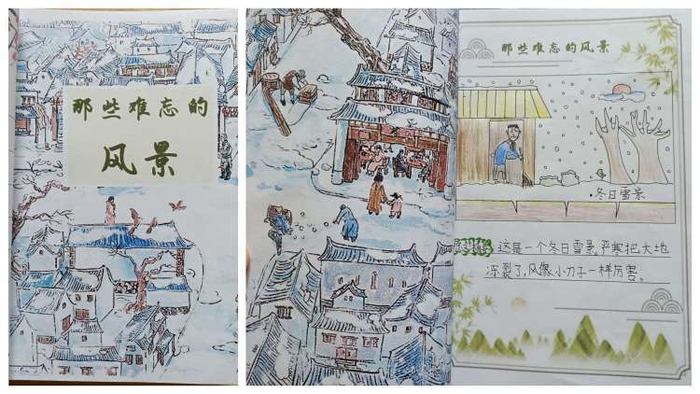 那些难忘的
风景
那些难忘的风景
·冬日雪景
这是一个冬日雪景,严寒把大地
冻裂了,风像小刀子一样厉害。